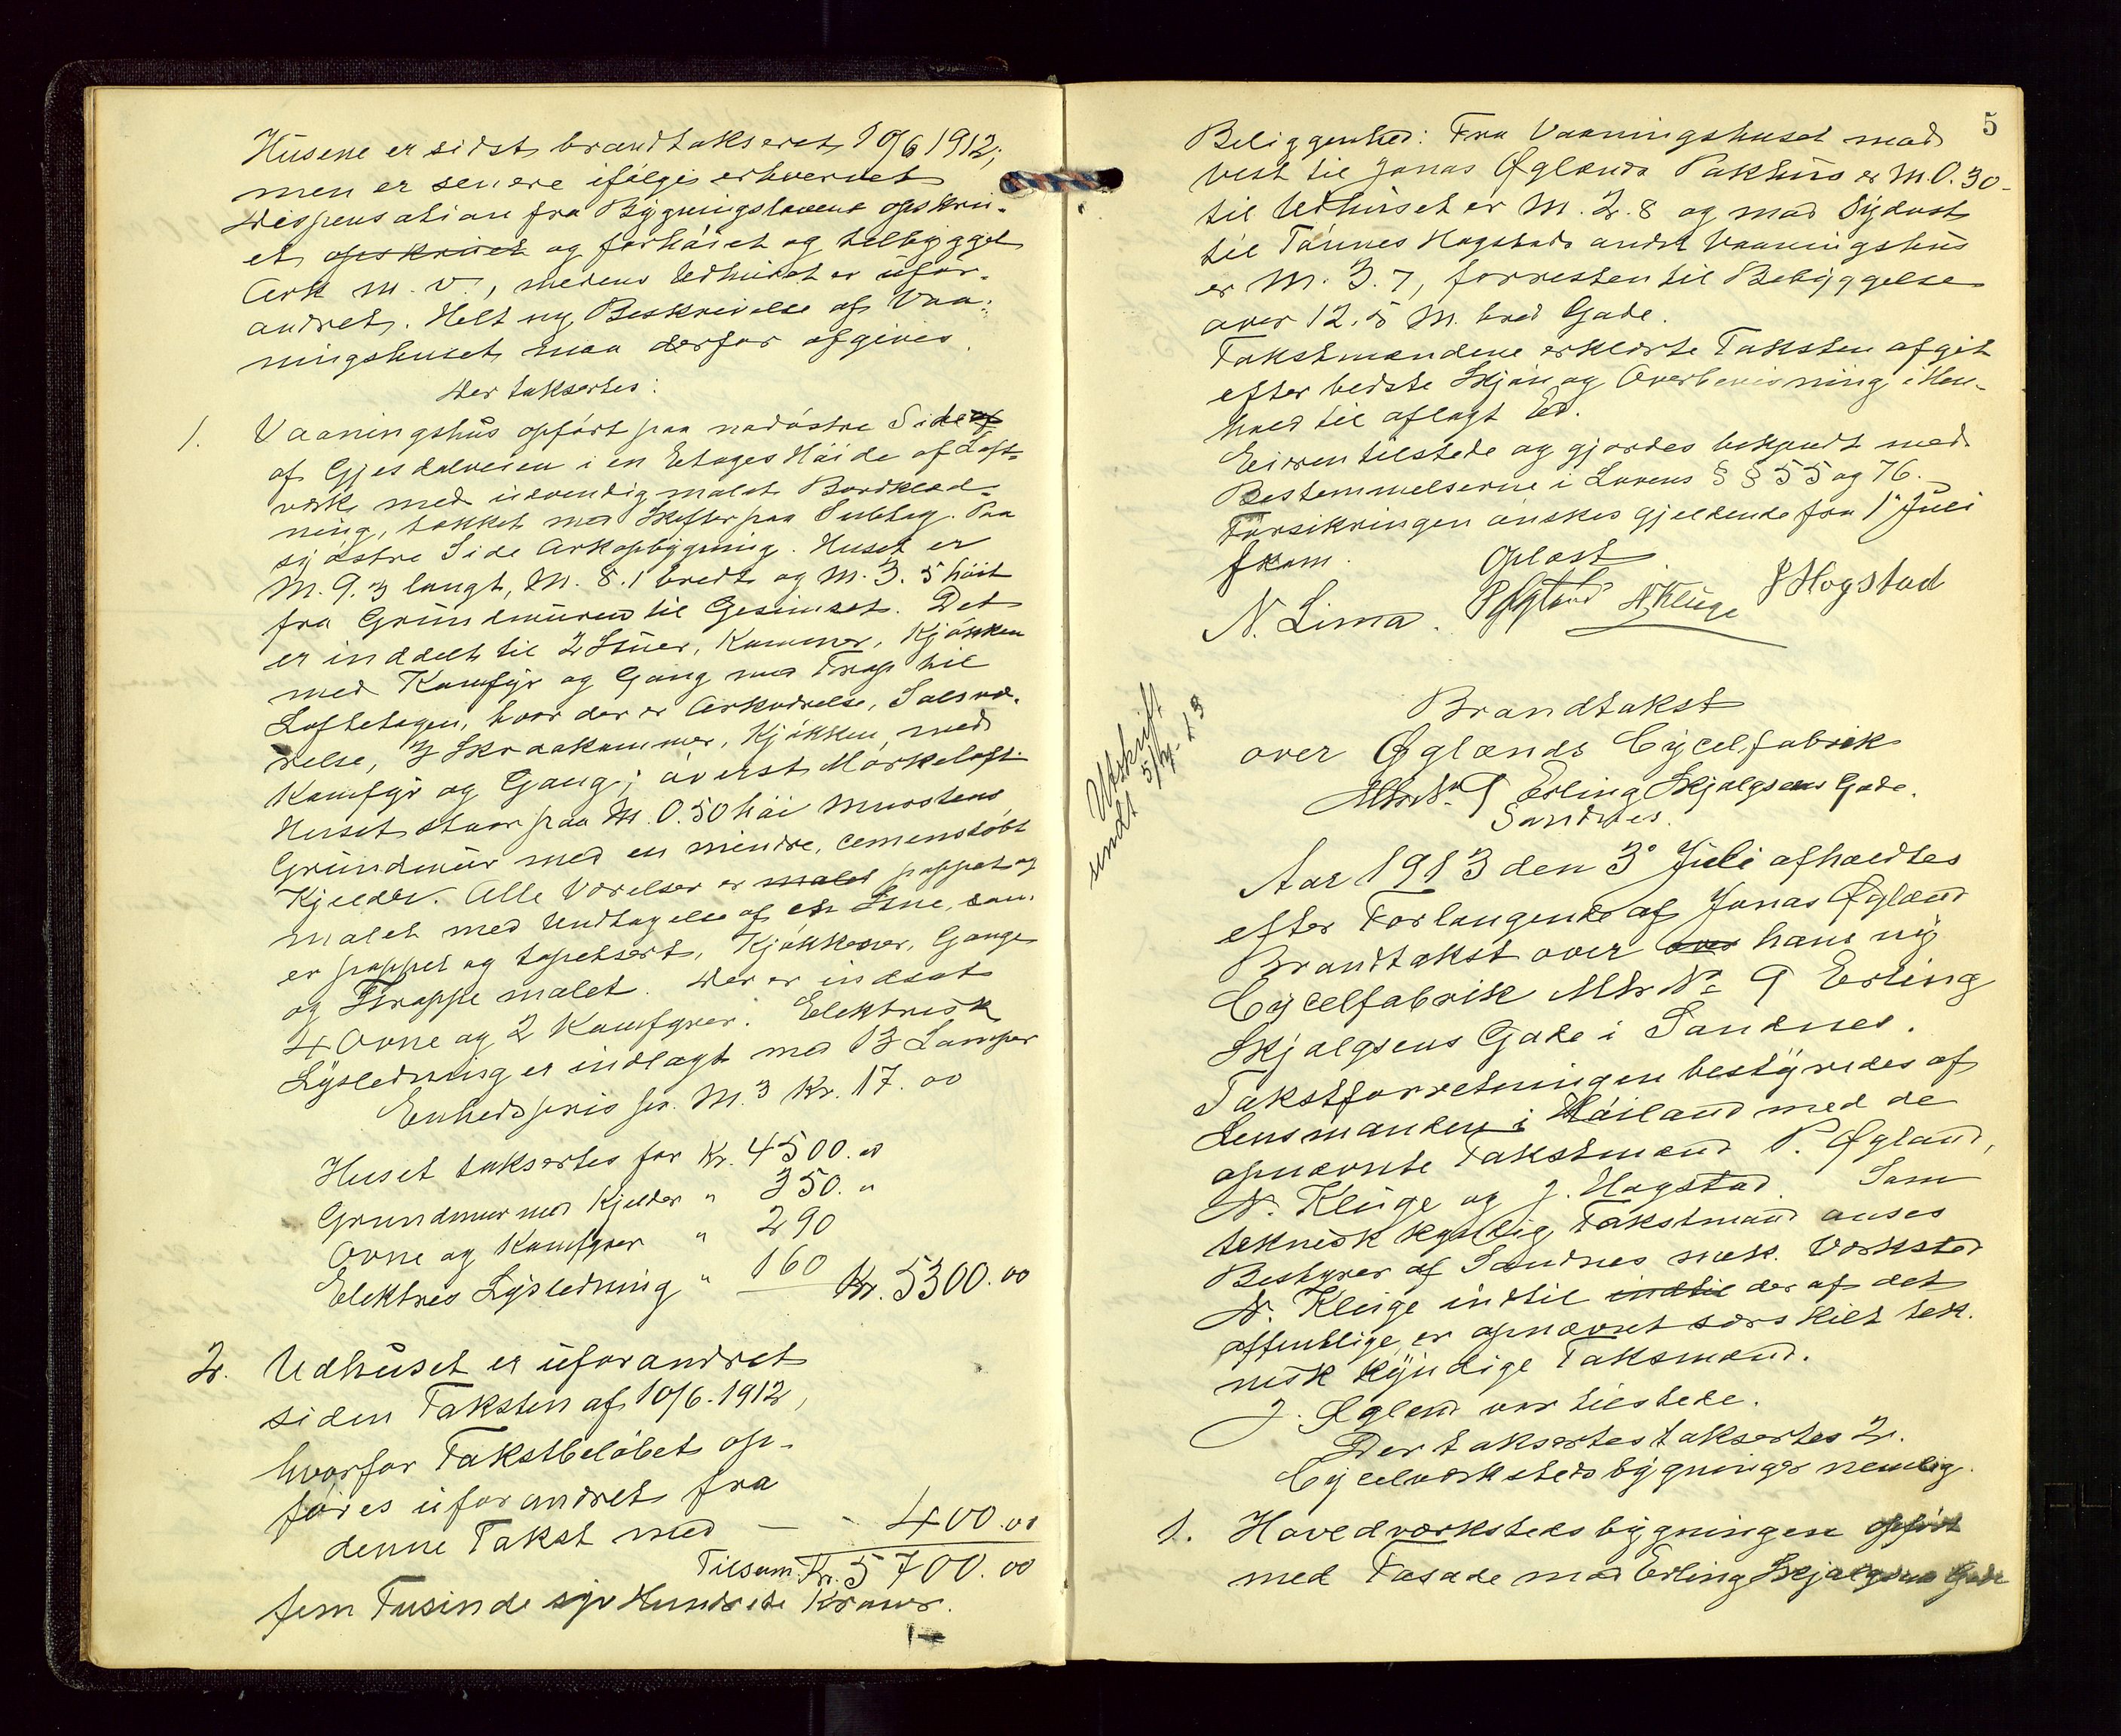 Husene er sidst brandtakseret 10/6 1912,
men er senere ifølge erhvervet
Dispensation fra Bygningsloven opskru-
et opskruet og forhøiet og tilbygget
Ark m. v., medens Udhuset er ufor-
andret. Helt ny Beskrivelse af Vaa-
ningshuset maa derfor afgives.
Der taksertes:
1. Vaaningshus opført paa nordøstre Side af
af Gjesdalveien i en Etages Høide af Loft-
værk med udvendig malet Bordklæd-
ning, tækket med Skifter paa Subtag. Paa
sydøstre Side Arkopbygning. Huset er
M. 9.3 langt, M. 8.1 bredt og M. 3.5 høit
fra Grundmuren til Gesimset. Det
er inddelt til 2 Stuer, Kammer, Kjøkken
med Komfyr og Gang med Trap til
Loftetagen, hvor der er Arkværelse, Salsvæ-
relse, 3 Skraakammer, Kjøkken med
Komfyr og Gang; øverst Mørkeloft.
Huset staar paa M. 0.50 høi Murstens
Grundmur med en mindre, cementstøbt
Kjelder. Alle Værelser er malet pappet og
malet med Undtagelse af en Stue, som
er pappet og tapetsert, Kjøkkener, Gange
og Trappe malet. Der er indsat
4 Ovne og 2 Komfyrer. Elektrisk
Lysledning er indlagt med 13 Lamper
Enhedspris pr. M.3 Kr. 17.00
Huset taksertes for Kr. 4500.00
Grundmur med Kjelder " 350. "
Ovne og Komfyrer " 290
Elektres Lysledning " 160 Kr. 5300.00
2. Udhuset er uforandret
siden Taksten af 10/6.1912,
hvorfor Takstbeløbet op-
føres uforandret fra
denne Takst med — - 400.00
Tilsam. Kr. 5700.00
fem Tusinde syv Hundrede Kroner.
5
Beliggenhed: Fra Vaaningshuset mod
Vest til Jonas Øglænds Pakhus er M. 0.30-
til Udhuset er M. 2.8 og mod Sydost
til Tønnes Hogstads andet Vaaningshus
er M. 3.7, forresten til Bebyggelse
over 12.5 M. bred Gade.
Takstmændene erklærte Taksten afgit
efter bedste Skjøn og Overbevisning i Hen-
hold til aflagt Ed.
Eieren tilstede og gjordes bekjendt med
Bestemmelserne i Lovens § § 55 og 76.
Forsikringen ønskes gjeldende fra 1' Juli
fkom. Oplæst
N. Lima. P Øglænd N Kluge J Hogstad
Utskrift
sendt 5/7-13
Brandtakst
over Øglænds Cycelfabrik
Mtr. No 9 Erling Skjalgsens Gade.
Sandnes.
Aar 1913 den 3' Juli afholdtes
efter Forlangende af Jonas Øglænd
Brandtakst over over hans ny
Cycelfabrik Mtr. No 9 Erling
Skjalgsens Gade i Sandnes.
Takstforretningen bestyredes af
Lensmanden i Høiland med de
opnævnte Takstmænd P. Øglænd,
N. Kluge og J. Hogstad. Som
teknisk kyndig Takstmand anses
Bestyrer af Sandnes mek. Værksted
N. Kluge indtil indtil der af det
offentlige er opnævnt særskilt tek-
nisk kyndige Taksmænd.
J. Øglænd var tilstede.
Der taksertes taksertes 2.
Cycelværkstedsbygninger nemlig.
1. Hovedværkstedsbygningen opført
med Fasade mod Erling Skjalgsens Gade